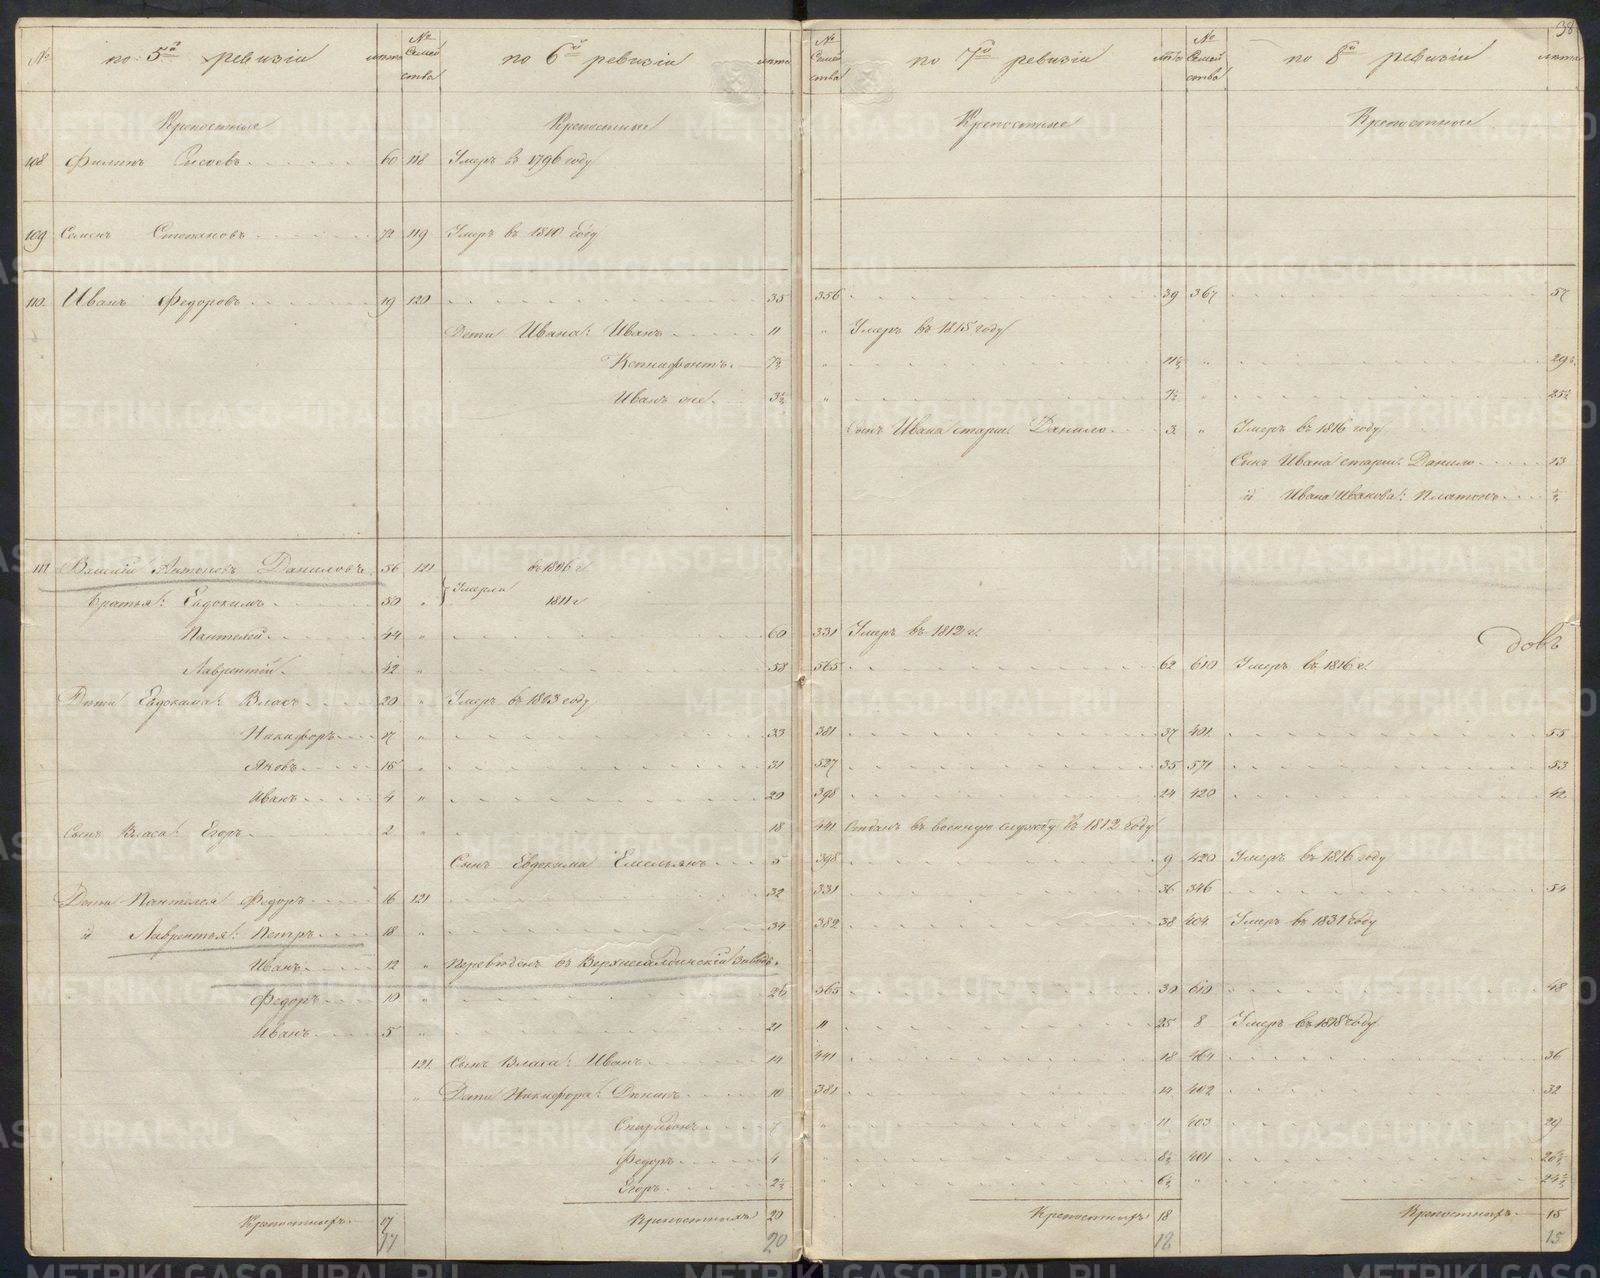 38
№ по 5й ревизіи лѣта № Семейства по 6й ревизіи лѣта № Семейства по 7й ревизіи лѣтъ № Семейства по 8й ревизіи лѣта
Крепостные Крепостные Крепостные Крепостные
108 Филипъ 60 118 Умеръ въ 1796 году
109 Семенъ Степановъ 72 119 Умеръ въ 1810 году
110 Иванъ Федоровъ 19 120 35 356 39 367 57
Дети Ивана: Иванъ 11 " Умеръ въ 1815 году
Ксенифонтъ 7½ " 11½ " 29½
Иванъ же 3½ " 7½ " 25½
Сынъ Ивана старш: Данило 3 " Умеръ въ 1816 году
Сынъ Ивана старш: Данило 13
и Ивана Иванова: Платонъ ½
111 Василій Антоновъ Даниловъ 56 121 въ 1806 г.
Братья: Евдокимъ 50 " Умерли 1811 г
Пантелей 44 " 60 331 Умеръ въ 1812 г.
довъ
Лаврентій 42 " 58 565 62 610 Умеръ въ 1816 г.
Дети Евдокима: Власъ 20 " Умеръ въ 1803 году
Никифоръ 17 " 33 381 37 401 55
Яковъ 15 " 31 527 35 571 53
Иванъ 4 " 20 398 24 420 42
Сынъ Власа: Егоръ 2 " 18 441 Отданъ въ военную службу въ 1812 году
Сынъ Евдокима Емельянъ 5 398 9 420 Умеръ въ 1816 году
Дети Пантелея Федоръ 16 121 32 331 36 346 54
и Лаврентья: Петръ 18 " 34 382 38 404 Умеръ въ 1831 году
Иванъ 12 " Переведенъ въ Верхнесалдинскій заводъ.
Федоръ 10 " 26 565 30 610 48
Иванъ 5 " 21 " 25 8 Умеръ въ 1818 году
121 Сынъ Власа: Иванъ 14 441 18 464 36
" Дети Никифора: Денисъ 10 381 14 402 32
Спиридонъ 7 " 11 403 29
Федоръ 4 " 8½ 401 26½
Егоръ 2½ " 6½ " 24½
Крепостныхъ 17 Крепостныхъ 20 Крепостныхъ 18 Крепостныхъ 15
17 20 18 15
METRIKI.GASO-URAL.RU